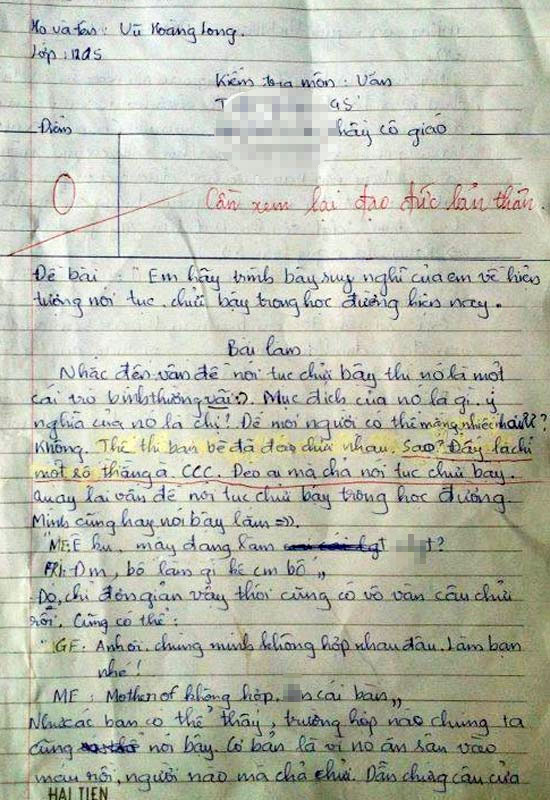 Họ và tên : Vũ Hoàng Long.
Lớp : 12A5
Kiểm tra môn : Văn
T
hầy cô giáo
Điểm
0
Cần xem lại đạo đức bản thân.
Đề bài : " Em hãy trình bày suy nghĩ của em về hiện
tượng nói tục, chửi bậy trong học đường hiện nay.
Bài làm :
Nhắc đến vấn đề nói tục chửi bậy thì nó là một
cái trò bình thường vãi :). Mục đích của nó là gì, ý
nghĩa của nó là chi? Để mọi người có thể mắng nhiếc nhau??
Không. Thế thì bạn bè đã đéo chửi nhau. Sao? Đấy là chỉ
một số thằng à. CCC. Đéo ai mà chả nói tục chửi bậy.
Quay lại vấn đề nói tục chửi bậy trong học đường
Mình cũng hay nói bậy lắm =)).
"ME: Ê ku, mày đang làm t?
FRI: Đm, bố làm gì kệ cm bố "
Đó, chỉ đơn giản vậy thôi cũng có vô vàn câu chửi
rồi. Cũng có thể :
"GF: Anh ơi, chúng mình không hợp nhau đâu. Làm bạn
nhé !
ME : Mother of không hợp. n cái bàn "
Như các bạn có thể thấy, trường hợp nào chúng ta
cũng nói bậy. Cơ bản là vì nó ăn sâu vào
máu rồi, người nào mà chả chửi. Dẫn chứng câu của
HAI TIEN